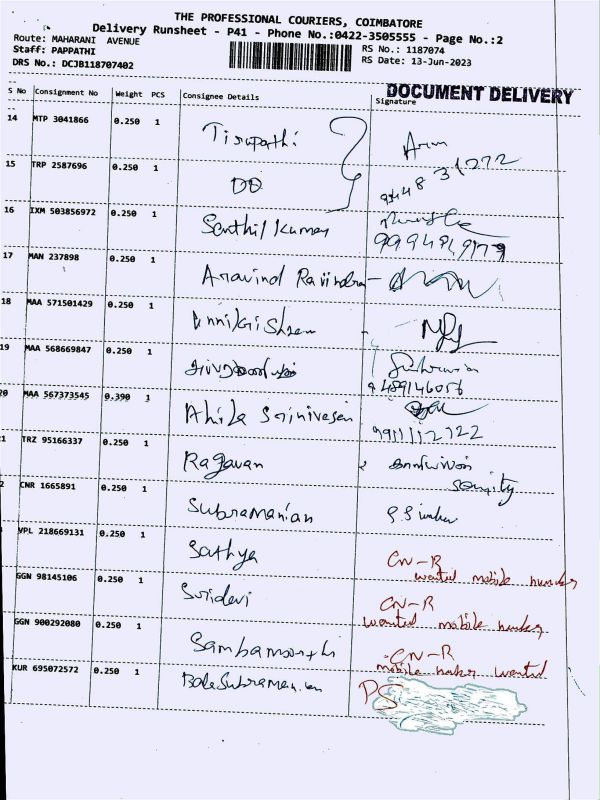 THE PROFESSIONAL COURIERS, COIMBATORE
Delivery Runsheet - P41 - Phone No.:0422-3505555 - Page No.:2
Route: MAHARANI AVENUE
RS No.: 1187074
Staff: PAPPATHI
RS Date: 13-Jun-2023
DRS No.: DCJB118707402
DOCUMENT DELIVERY
S No Consignment No Weight PCS Consignee Details Signature
14 MTP 3041866 0.250 1 Tirupathi
15 TRP 2587696 0.250 1 DD
16 IXM 503856972 0.250 1 Senthil Kumar
17 MAN 237898 0.250 1 Aravind Ravindra
18 MAA 571501429 0.250 1 Unnikrishnan
19 MAA 568669847 0.250 1
9489146056
20 MAA 567373545 0.390 1 Ahila Srinivasan
1 TRZ 95166337 0.250 1 Ragavan
Security
2 CNR 1665891 0.250 1 Subramanian
VPL 218669131 0.250 1 Sathya CN-R
wanted mobile number
GGN 98145106 0.250 1 Sridevi CN-R
wanted mobile number
GGN 900292080 0.250 1 Sambamoorthi CN-R
mobile number wanted
KUR 695072572 0.250 1 BalaSubramanian PS